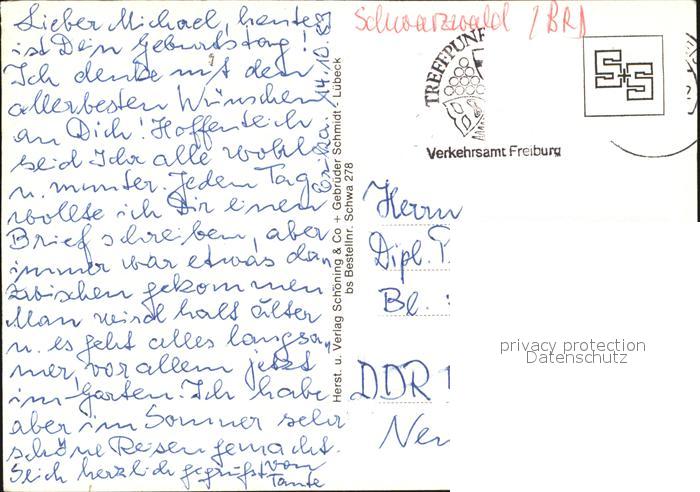 Lieber Michael, heute
ist Dein Geburtstag!
Ich denke mit den
allerbesten Wünschen
an Dich! Hoffentlich
seid Ihr alle wohl
u. munter. Jeden Tag
wollte ich Dir einen
Brief schreiben, aber
immer war etwas da-
zwischen gekommen
Man wird halt älter
u. es geht alles langsa-
mer, vor allem jetzt
im Garten. Ich habe
aber im Sommer sehr
schöne Reisen gemacht.
Seich herzlich gegrüßt von
Tante
Erika. 14.10.83
Herst. u. Verlag Schöning & Co + Gebrüder Schmidt - Lübeck
bs Bestellnr. Schwa 278
Schwarzwald / BRD
TREFFPUNK
Verkehrsamt Freiburg
S+S
Herrn
Dipl.
Bl.
DDR
privacy protection
Datenschutz